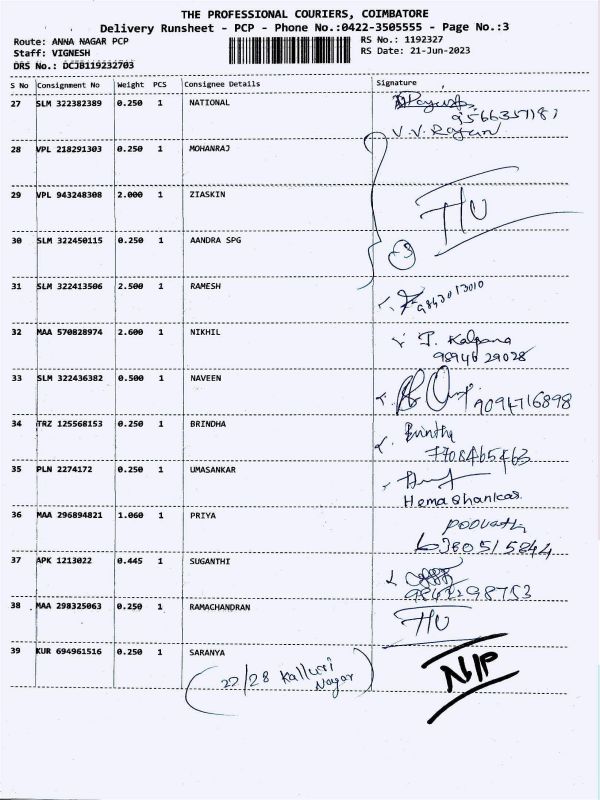 THE PROFESSIONAL COURIERS, COIMBATORE
Delivery Runsheet - PCP - Phone No.:0422-3505555 - Page No.:3
Route: ANNA NAGAR PCP RS No.: 1192327
Staff: VIGNESH RS Date: 21-Jun-2023
DRS No.: DCJB119232703
S No Consignment No Weight PCS Consignee Details Signature
27 SLM 322382389 0.250 1 NATIONAL
9566357187
V.V. Rajan
28 VPL 218291303 0.250 1 MOHANRAJ
29 VPL 943248308 2.000 1 ZIASKIN
30 SLM 322450115 0.250 1 AANDRA SPG
31 SLM 322413506 2.500 1 RAMESH 9843013010
32 MAA 570828974 2.600 1 NIKHIL T. Kalpana
98946 29028
33 SLM 322436382 0.500 1 NAVEEN 9094716898
34 TRZ 125568153 0.250 1 BRINDHA Brintha
7708465463
35 PLN 2274172 0.250 1 UMASANKAR
Hema Shankar
36 MAA 296894821 1.060 1 PRIYA
6380515844
37 APK 1213022 0.445 1 SUGANTHI
9842298753
38 MAA 298325063 0.250 1 RAMACHANDRAN
39 KUR 694961516 0.250 1 SARANYA N/P
22/28 Kalluri
Nagar